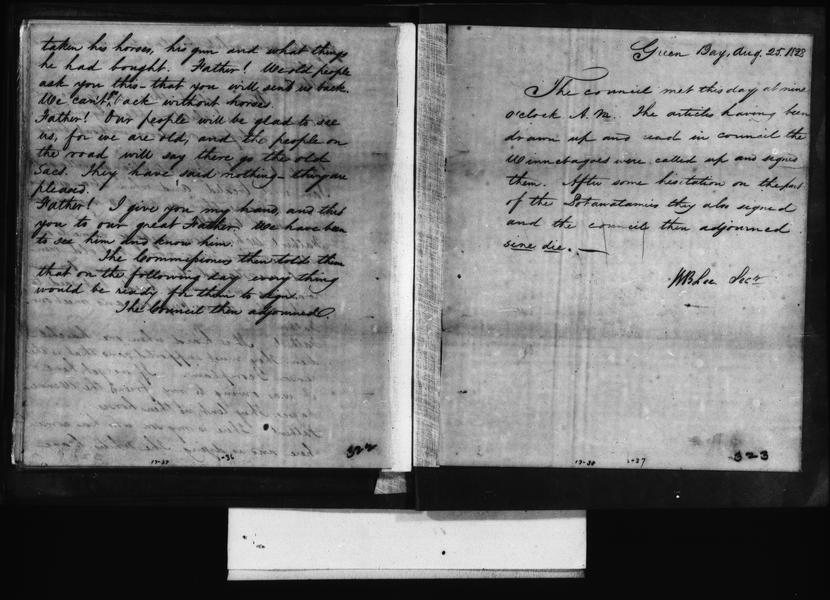 taken his horses, his gun and what things
he had bought. Father! We old people
ask you this - that you will send us back.
We can't back without horses.
Father! Our people will be glad to see
us, for we are old, and the people on
the road will say there go the old
Sacs. They have said nothing - they are
pleased.
Father! I give you my hand, and this
you to our great Father. We have been
to see him and know him.
The Commissioners then told them
that on the following day every thing
would be ready for them to sign.
The Council then adjourned.
322
17-37 1-36
Green Bay, Aug. 25. 1828
The council met this day at nine
o'clock A.M. The articles having been
drawn up and read in council the
Winnebagoes were called up and signed
them. After some hesitation on the part
of the Potawatamies they also signed
and the council then adjourned
sine die.
WB Lee Secy
17-38 1-37
323